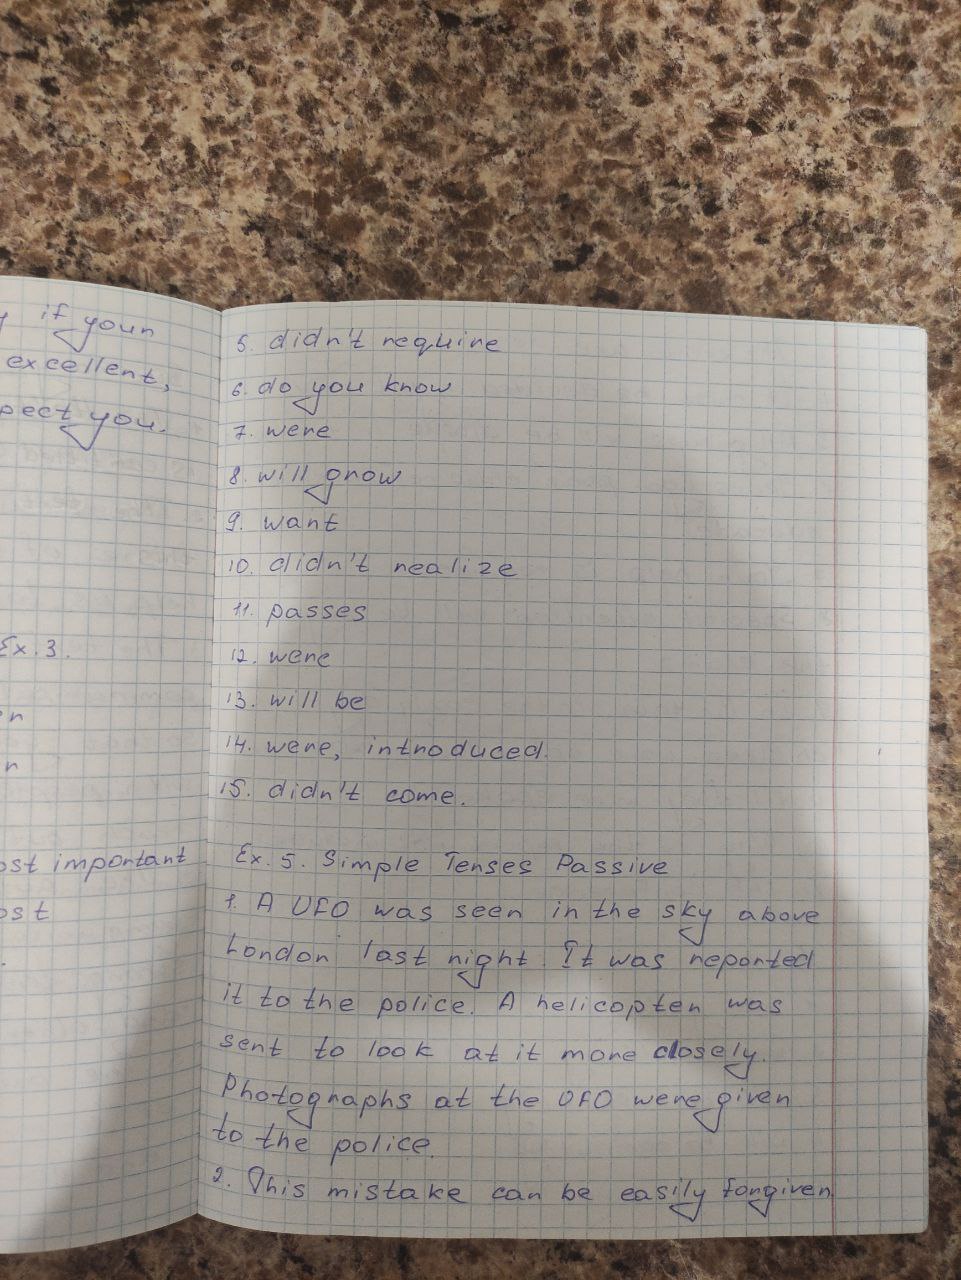 if your
excellent,
pect you.
Ex. 3.
ost important
ost
5. didn't require
6. do you know
7. were
8. will grow
9. want
10. didn't realize
11. passes
12. were
13. will be
14. were, introduced.
15. didn't come.
Ex. 5. Simple Tenses Passive
1. A UFO was seen in the sky above
London last night. It was reported
it to the police. A helicopter was
sent to look at it more closely.
Photographs at the UFO were given
to the police.
2. This mistake can be easily forgiven